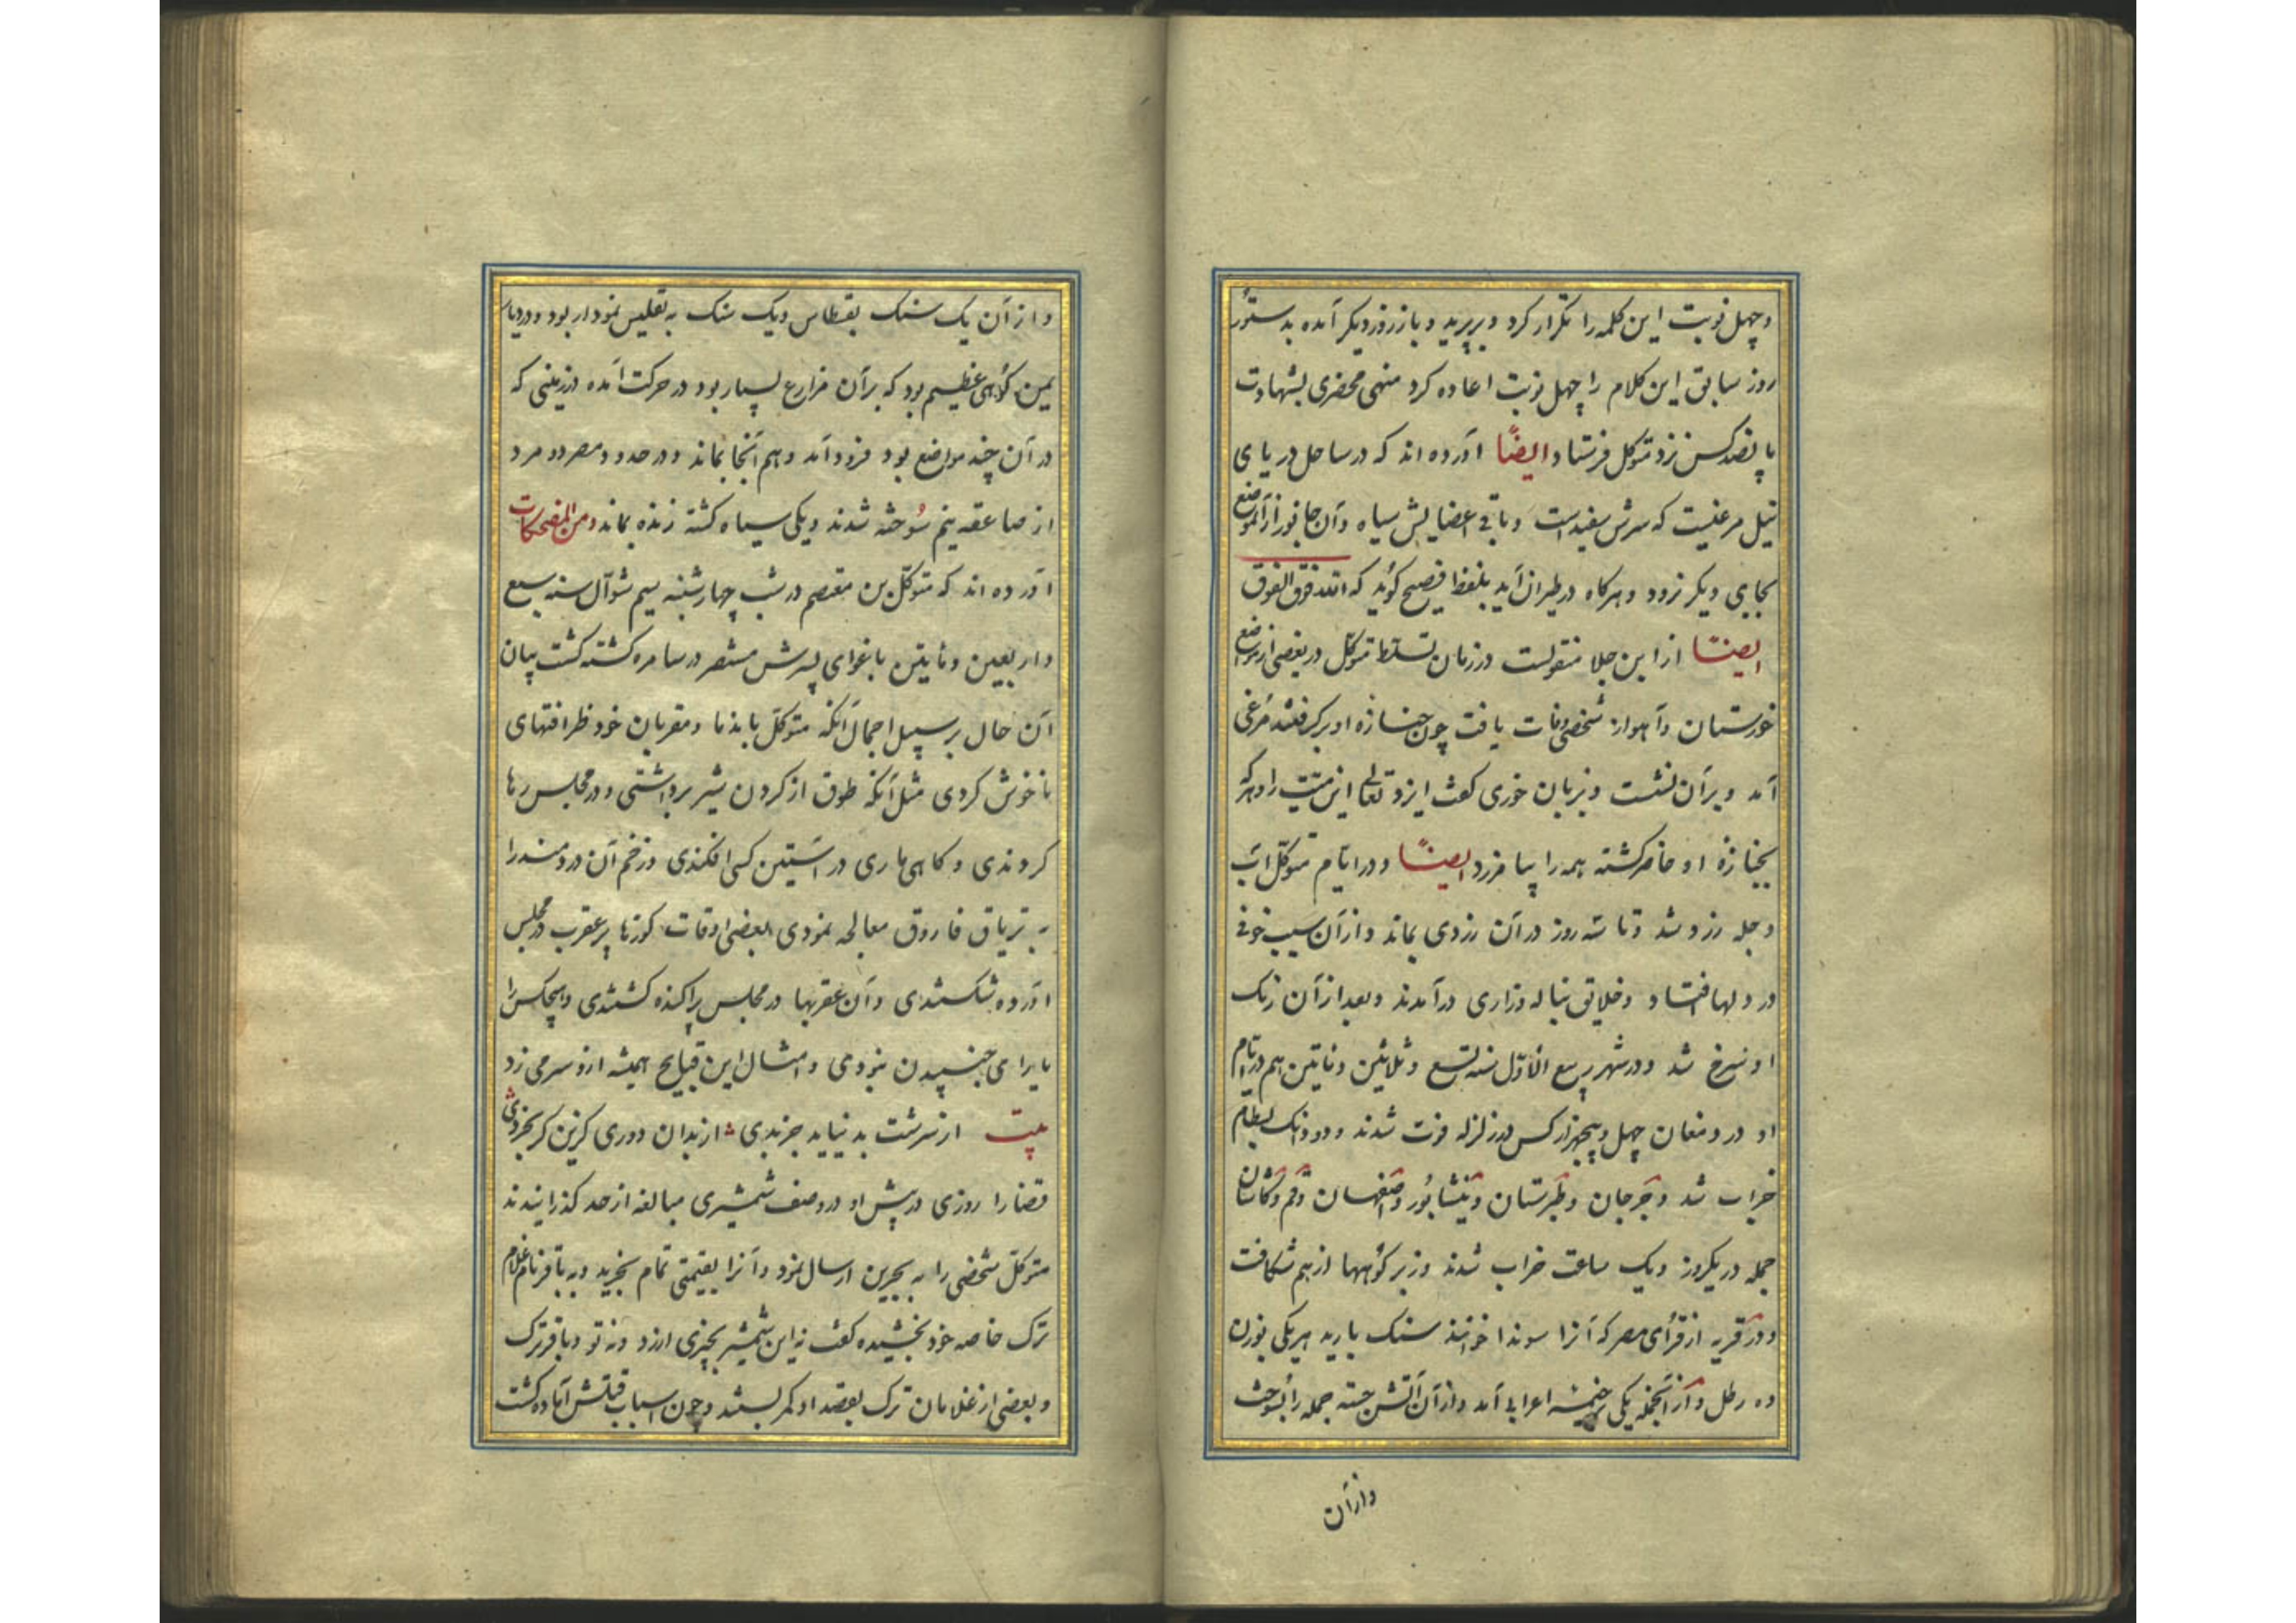 وچهل نوبت این کلمه را تکرار کرد و بپرید و باز روز دیکر آمده بدستور
روز سابق این کلام را چهل نوبت اعاده کرد منهی محضری بشهادت
پانصد کس نزد متوکل فرستاد ایضًا آورده اند که در ساحل دریای
نیل مرغیست که سرش سفید است و باقی اعضایش سیاه و آن جانور از آن موضع
بجایی دیکر نرود و هرکاه در طیران آید بلفظ فصیح کوید که الله فوق الفوق
ایضًا از ابن جلا منقولست در زمان تسلط متوکل در بعضی از مواضع
خوزستان و آهواز شخصی وفات یافت چون جنازه او برکرفتند مرغی
آمد و بر آن نشست و بزبان خوزی کفت ایزد تعالی این میّت را و هرکه
بجنازهٔ او حاضر کشته همه را بیامرزد ایضًا و در ایّام متوکّل آب
دجله زرد شد و تا سه روز در آن زردی بماند و از آن سبب خوفی
در دلها افتاد و خلایق بناله و زاری درآمدند و بعد از آن رنک
او سرخ شد و در شهر ربیع الاوّل سنه تسع و ثلاثین و مایتین هم در ایّام
او در دمغان چهل و پنجهزار کس در زلزله فوت شدند و دو دانک بسطام
خراب شد و جرجان و طبرستان و نیشابور و اصفهان و قم و کاشان
جمله در یکروز و یک ساعت خراب شدند و زبر کوهها از هم شکافت
و در قریه از قرای مصر که آنرا سوندا خوانند سنک بارید هر یکی بوزن
ده رطل و از آنجمله یکی بر خیمهٔ اعرابی آمد و از آن آتش جسته جمله را بسوخت
وازآن
و از آن یک سنک بفسطاس و یک سنک به تفلیس نمودار بود و در دیار
یمن کوهی عظیم بود که بر آن مزارع بسیار بود در حرکت آمده در زمینی که
در آن چند مواضع بود فرود آمد و هم آنجا بماند و در حدود مصر دو مرد
از صاعقه نیم سوخته شدند و یکی سیاه کشته زنده بماند و من المضحکات
آورده اند که متوکّل بن معتصم در شب چهارشنبه سیم شوآل سنه سبع
و اربعین و مایتین باغوای پسرش منتصر در سامره کشته کشت بیان
آن حال بر سبیل اجمال آنکه متوکّل با ندما و مقربان خود ظرافتهای
ناخوش کردی مثل آنکه طوق از کردن شیر برداشتی و در مجلس رها
کردندی و کاهی ماری در آستین کسی افکندی و زخم آن دردمند را
به تریاق فاروق معالجه نمودی بعضی اوقات کوزها پر عقرب در مجلس
آورده شکستندی و آن عقربها در مجلس پراکنده کشتندی و هیچکس را
یارای جنبیدن نبودی و امثال این قبایح همیشه ازو سر می زد
بیت از سرشت بد نیاید جز بدی از بدان دوری کزین کر بخردی
قضا را روزی در پیش او در وصف شمشیری مبالغه از حد کذرانیدند
متوکّل شخصی را به بحرین ارسال نمود و آنرا بقیمتی تمام بخرید و به باقر نام غلام
ترک خاصه خود بخشیده کفت نه این شمشیر بچیزی ارزد و نه تو و باقر ترک
و بعضی از غلامان ترک بقصد او کمر بستند و چون اسباب قتلش آماده کشت